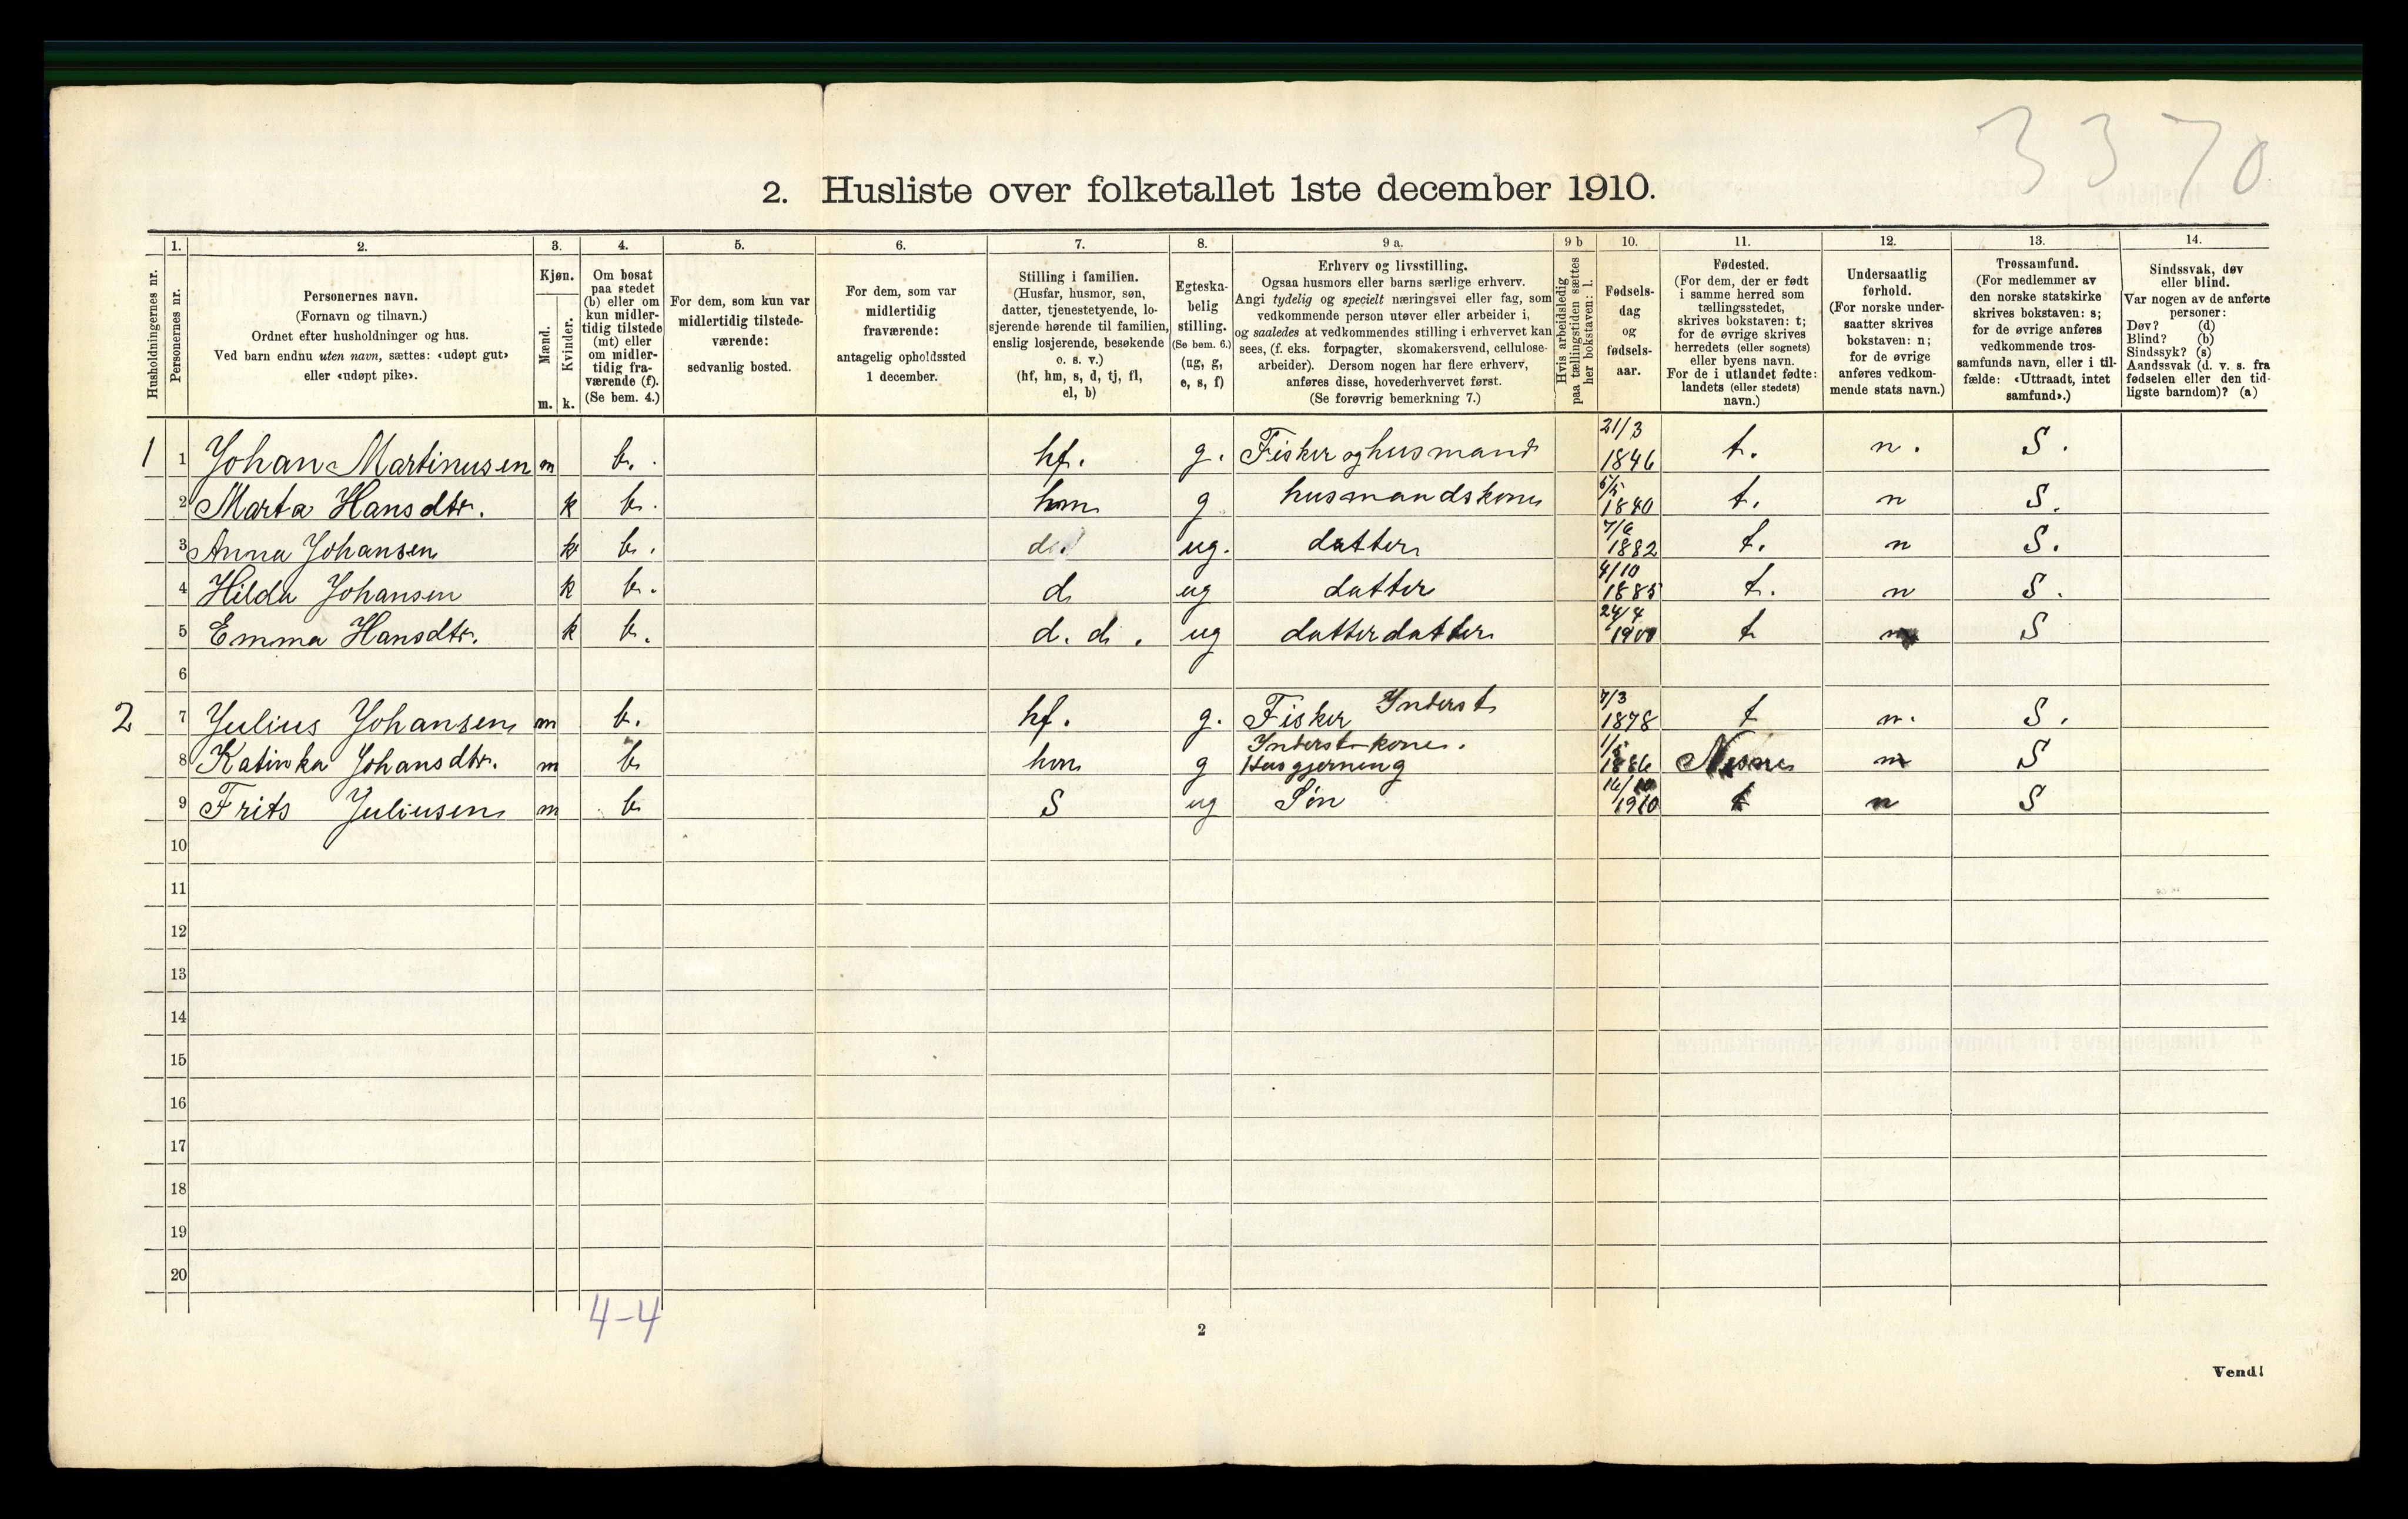 3370
2. Husliste over folketallet 1ste december 1910.
Husholdningernes nr.
1.
Personernes nr.
2.
Personernes navn.
(Fornavn og tilnavn.)
Ordnet efter husholdninger og hus.
Ved barn endnu uten navn, sættes: «udøpt gut»
eller «udøpt pike».
3.
Kjøn.
Mænd.
m.
Kvinder.
k.
4.
Om bosat
paa stedet
(b) eller om
kun midler-
tidig tilstede
(mt) eller
om midler-
tidig fra-
værende (f).
(Se bem. 4.)
5.
For dem, som kun var
midlertidig tilstede-
værende:
sedvanlig bosted.
6.
For dem, som var
midlertidig
fraværende:
antagelig opholdssted
1 december.
7.
Stilling i familien.
(Husfar, husmor, søn,
datter, tjenestetyende, lo-
sjerende hørende til familien,
enslig losjerende, besøkende
o. s. v.)
(hf, hm, s, d, tj, fl,
el, b)
8.
Egteska-
belig
stilling.
(Se bem. 6.)
(ug, g,
e, s, f)
9 a.
Erhverv og livsstilling.
Ogsaa husmors eller barns særlige erhverv.
Angi tydelig og specielt næringsvei eller fag, som
vedkommende person utøver eller arbeider i,
og saaledes at vedkommendes stilling i erhvervet kan
sees, (f. eks. forpagter, skomakersvend, cellulose-
arbeider). Dersom nogen har flere erhverv,
anføres disse, hovederhvervet først.
(Se forøvrig bemerkning 7.)
9 b
Hvis arbeidsledig
paa tællingstiden sættes
her bokstaven: l.
10.
Fødsels-
dag
og
fødsels-
aar.
11.
Fødested.
(For dem, der er født
i samme herred som
tællingsstedet,
skrives bokstaven: t;
for de øvrige skrives
herredets (eller sognets)
eller byens navn.
For de i utlandet fødte:
landets (eller stedets)
navn.)
12.
Undersaatlig
forhold.
(For norske under-
saatter skrives
bokstaven: n;
for de øvrige
anføres vedkom-
mende stats navn.)
13.
Trossamfund.
(For medlemmer av
den norske statskirke
skrives bokstaven: s;
for de øvrige anføres
vedkommende tros-
samfunds navn, eller i til-
fælde: «Uttraadt, intet
samfund».)
14.
Sindssvak, døv
eller blind.
Var nogen av de anførte
personer:
Døv? (d)
Blind? (b)
Sindssyk? (s)
Aandssvak (d. v. s. fra
fødselen eller den tid-
ligste barndom)? (a)
1 1 Johan Martinusen m b. hf. g. Fisker og husmand 21/3 1846 t. n. S.
2 Marta Hansdtr. k b. hm g husmandskone 5/5 1840 t. n S.
3 Anna Johansen k b. d. ug. datter 7/6 1882 t. n S.
4 Hilda Johansen k b. d ug datter 4/10 1885 t. n S.
5 Emma Hansdtr. k b. d. d. ug datterdatter 24/4 t n S
6
2 7 Julius Johansen m b. hf. g. Fisker Inderst 7/3 1878 t n. S.
8 Katinka Johansdtr. m b hm g Inderst kone. Husgjerning 1/5 1886 Nesne n S
9 Frits Juliusen m b S ug Søn 1910 t n S
10
11
12
13
14
15
16
17
18
19
20
4-4
2
Vend!